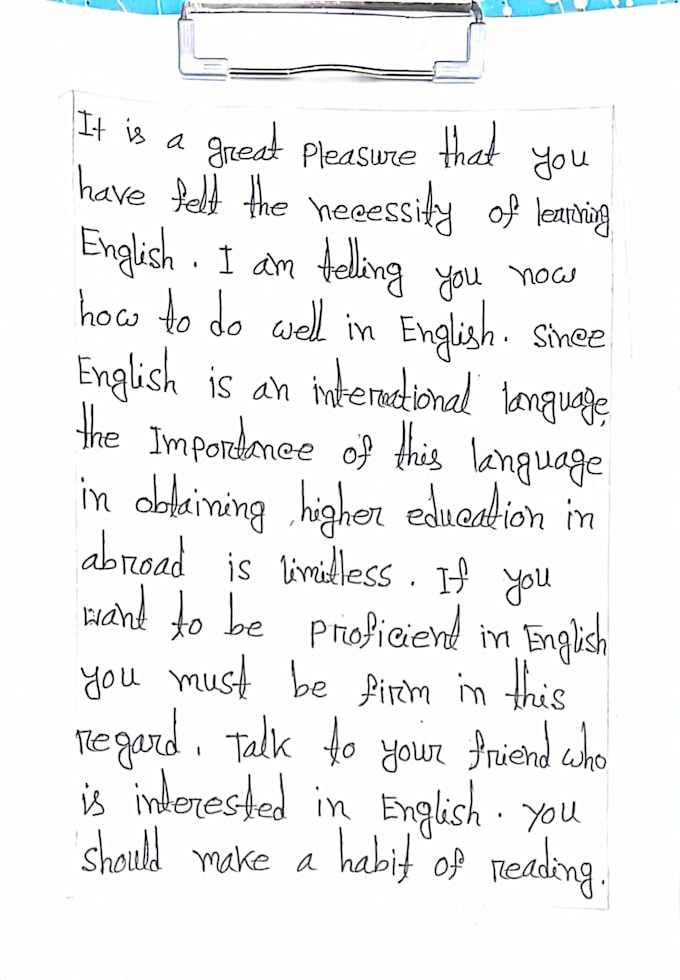 It is a great pleasure that you
have felt the necessity of learning
English. I am telling you now
how to do well in English. Since
English is an international language,
the Importance of this language
in obtaining higher education in
abroad is limitless. If you
want to be proficient in English
you must be firm in this
regard. Talk to your friend who
is interested in English. You
should make a habit of reading.